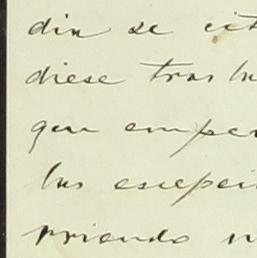 din se cit
diese tras lu
que emper
las escepci
rriendo n